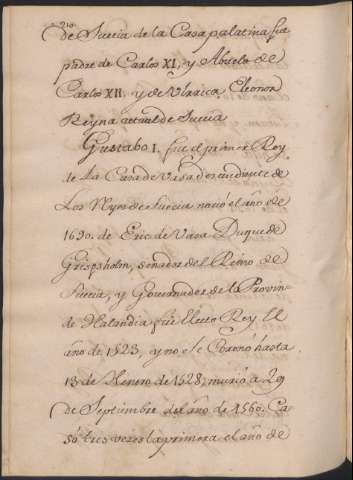 210.
de Suecia de la Casa palatina fue
padre de Carlos XI, y Abuelo de
Carlos XII, y de Vlarica Eleonor
Reyna actual de Suecia
Gustabo I. fue el primer Rey
de La Casa de Vasa descendiente de
Los Reyes de Suecia nació el año de
1690. de Eric de Vasa Duque de
Gripsholm, senador del Reino de
Suecia, y Governador de la Provin
de Halandia fue Electo Rey El
año de 1523, y no se Coronó hasta
13 de Henero de 1528, murió a 29
de Septiembre del año de 1560. Ca
só tres veces la primera el año de